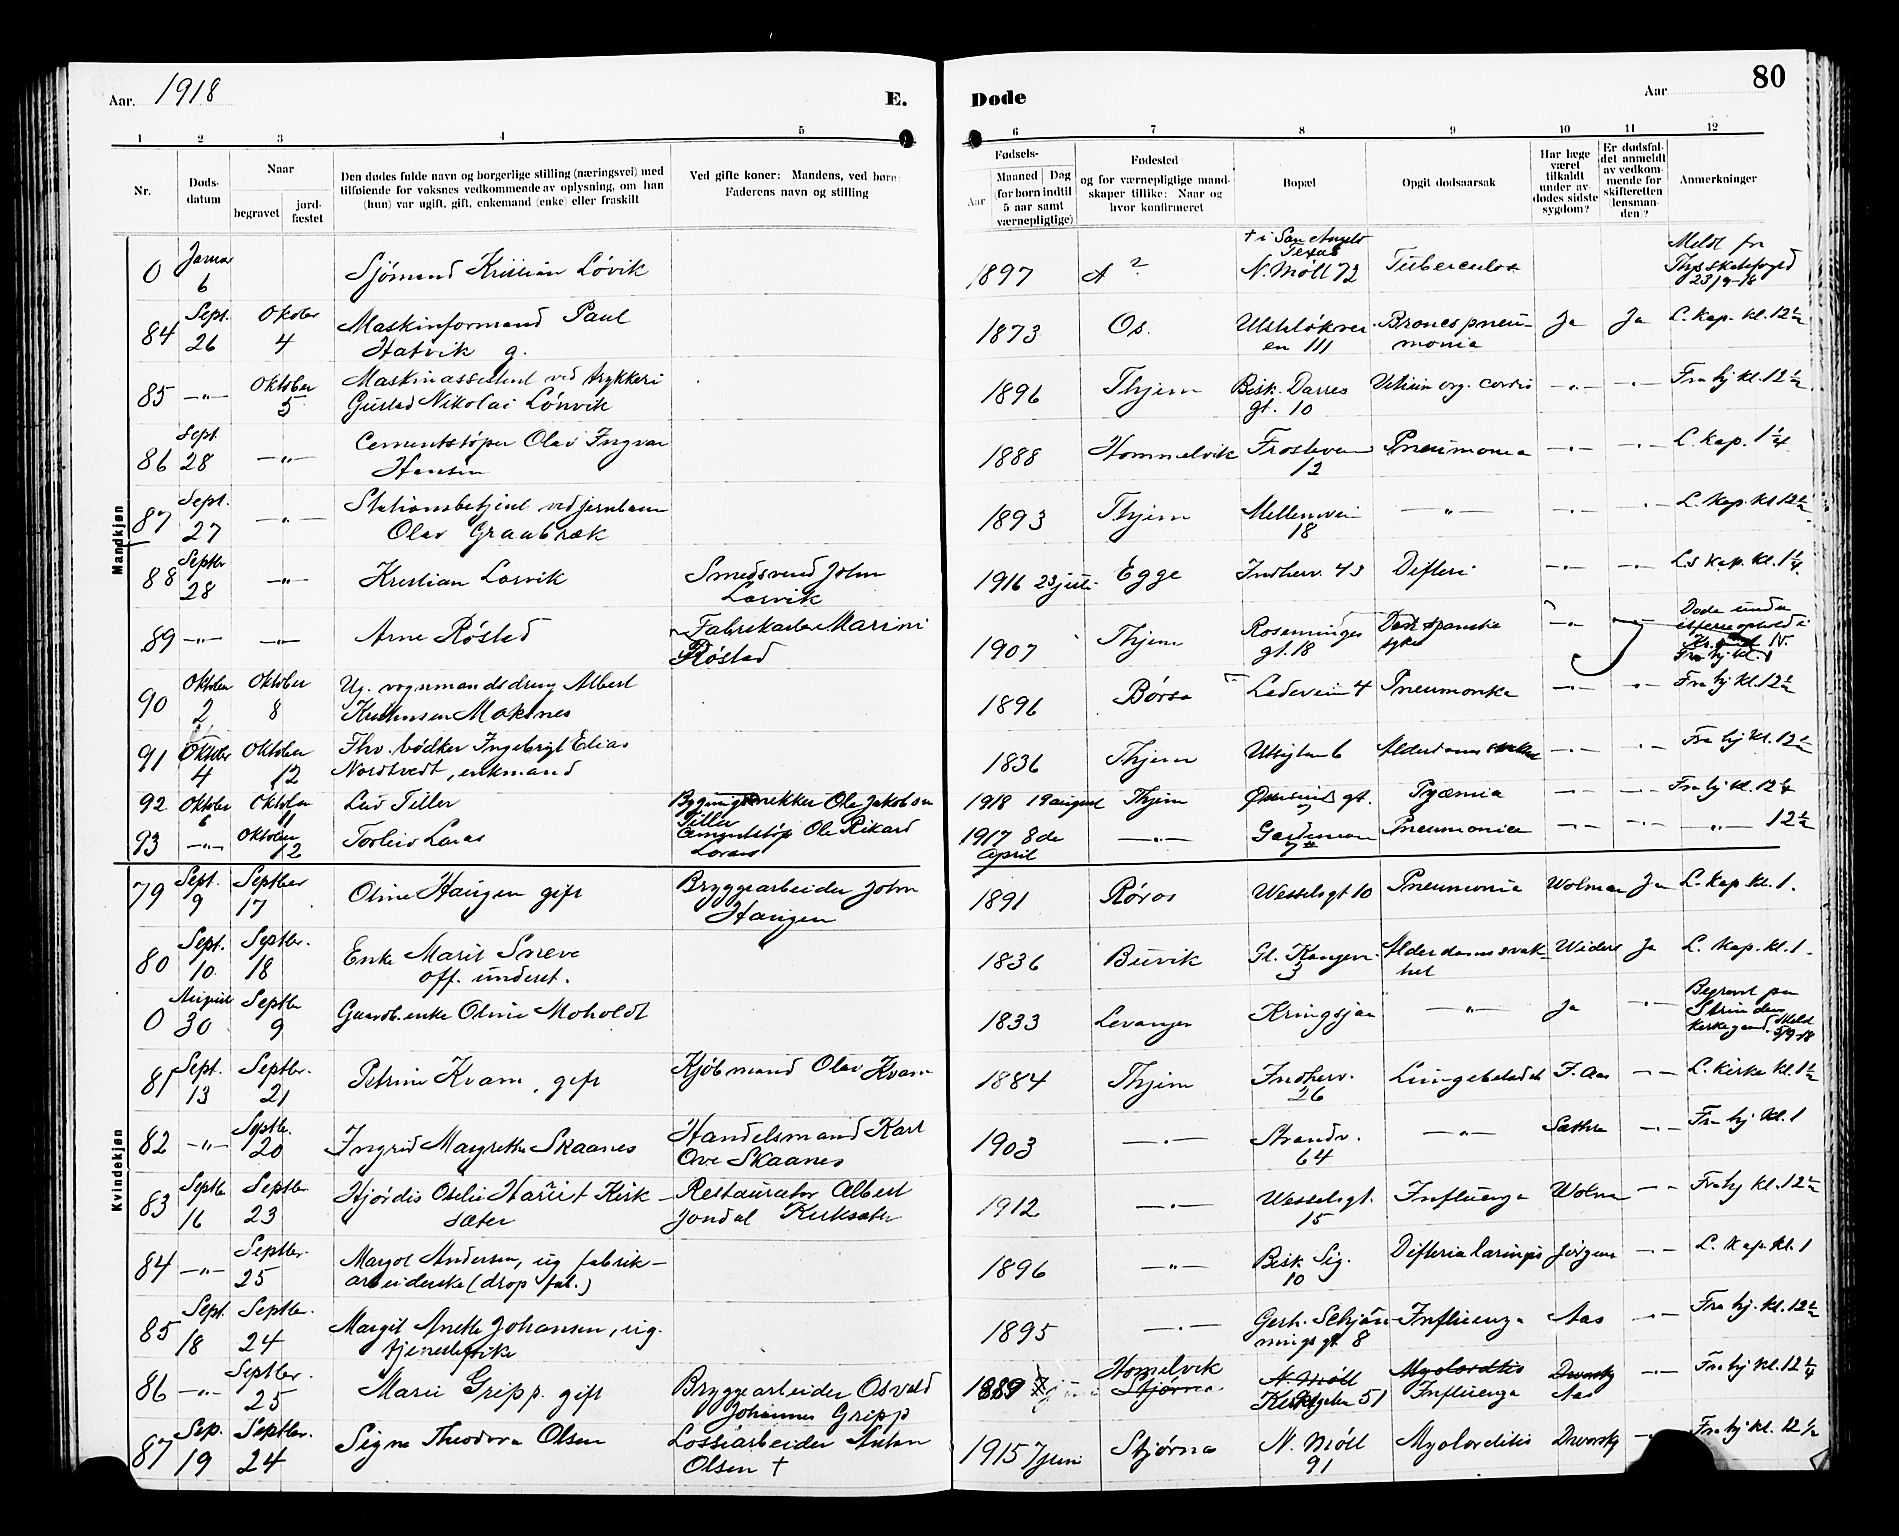 Aar. 1918
E. Døde
Aar
80
1 2 3 4 5 6 7 8 9 10 11 12
Nr.
Døds-
datum
Naar
begravet
jord-
fæstet
Den dødes fulde navn og borgerlige stilling (næringsvei) med
tilføiende for voksnes vedkommende av oplysning, om han
(hun) var ugift, gift, enkemand (enke) eller fraskilt
Ved gifte koner: Mandens, ved børn:
Faderens navn og stilling
Fødsels-
Aar
Maaned Dag
(for børn indtil
5 aar samt
værnepligtige)
Fødested
og for værnepligtige mand-
skaper tillike: Naar og
hvor konfirmeret
Bopæl
Opgit dødsaarsak
Har læge
været
tilkaldt
under av-
dødes sidste
sygdom?
Er dødsfal-
det anmeldt
av vedkom-
mende for
skifteretten
(lensman-
den)?
Anmerkninger
Mandkjøn
0 Januar 6 Sjømand Kristian Løvik 1897 ? † i San Angelo Texas N. Møll 72 Tuberculos Meldt fra Thjs skatefoged 23/9-18
84 Sept. 26 Oktober 4 Maskinformand Paul
Hatvik g. 1873 Os. en 111 Broncspneu-
monia Ja Ja L. kap. kl. 12 1/2
85 -"- Oktober 5 Maskinassistent ved trykkeri
Gustav Nikolai Lønvik 1896 Thjem Bisk. Darres
gt. 10 Vitium org. cordis -"- -"- Fra hj kl. 12 1/2
86 Sept 28 -"- Cementstøper Olav Ingvar
Hansen 1888 Hommelvik Frostaven
12 Pneumonia -"- -"- L. kap. 1 1/4
87 Sept. 27 -"- Stationsbetjent ved jernbanen
Olav Graabræk 1893 Thjem Mellemvei
18 -"- -"- -"- L. kap. kl 12 1/2
88 Septbr 28 -"- Kristian Lorvik Smedsvend John
Lorvik 1916 23 juli Egge Indherv. 43 Difteri -"- -"- L.s kap. kl. 1 1/4
89 -"- -"- Arne Røstad Fabrikarb. Marini
Røstad 1907 Thjem gt. 18 Den spanske
syke -"- Døde under
Fra hj kl. 1
90 Oktober 2 Oktober 8 Ug. vognmandsdreng Albert
Kristensen Moksnes 1896 Børsa Ladevein 4 Pneumonia -"- -"- Fra hj kl. 12 1/2
91 Oktober 4 Oktober 12 Fhv. bødker Ingebrigt Elias
Nordtvedt, enkmand 1836 Thjem Alderdomssvakhet -"- -"- Fra hj kl. 12 1/2
92 Oktober 6 Oktober 11 Leiv Tiller Bygningssnekker Ole Jakobsen
Tiller 1918 19 august Thjem Pyæmia -"- -"- Fra hj kl. 12 1/4
93 -"- Oktober 12 Torleiv Loras Cementstøp Ole Rikard
Loraas 1917 8de
April -"- Pneumonia -"- -"- -"- 12 1/2
Kvindekjøn
79 Sept. 9 Septber 17 Oline Haugen gift Bryggearbeider John
Haugen 1891 Røros Wesselsgt 10 Pneumonia Wolman Ja L. kap kl. 1.
80 Sept. 10 Septbr. 18 Enke Marit Sneve
off. underst. 1836 Buvik Gl. Kongev.
3 Alderdomssvak-
het Widerö Ja L. kap. kl. 1.
0 August 30 Septbr 9 Gaardb. enke Oline Moholdt 1833 Levanger Kringsjaa -"- Ja -"- Begravet paa
Strinden
kirkegaard. Meldt
5/9-18
81 Sept. 13 Septbr. 21 Petrine Kvam, gift Kjøbmand Olav Kvam 1884 Thjem Indherv.
26 F. Aas -"- L. kirke kl. 1 1/2
82 -"- Septbr. 20 Ingrid Margrethe Skaanes Handelsmand Karl
Ove Skaanes 1903 -"- Strandv.
64 -"- Sæther -"- Fra hj kl. 1
83 Septbr 16 Septbr 23 Hjørdis Otelie Harriet Kirk-
sæter Restauratør Albert
Jondal Kirksæter 1912 -"- Wesselsgt.
15 Influenza Wolman -"- Fra hj kl. 12 1/2
84 -"- Septbr. 25 Margot Andersen, ug fabrik-
arbeiderske (drops fab.) 1896 -"- Bisk Sig.
10 Difteria laringis Jørgens -"- L. kap. kl. 1
85 Sept. 18 Septbr. 24 Margit Anette Johansen, ug.
tjenestepike 1895 -"- Gerh. Schjøn-
nings gt. 8 Influenza Aas -"- Fra hj. kl. 12 1/2
86 -"- Septbr. 25 Marie Gripp. gift Bryggearbeider Osvald
Johannes Gripp 1889 Homelvik
Stjørna N. Møll
51 Myokorditis
Influenza Dvorsky
Aas -"- Fra hj kl. 12 1/4
87 Sep. 19 Septbr. 24 Signe Theodora Olsen Lossearbeider Anton
Olsen † 1915 7 juni Stjørna N. Møll
91 Myokorditis Dvorsky -"- Fra hj kl. 12 1/2